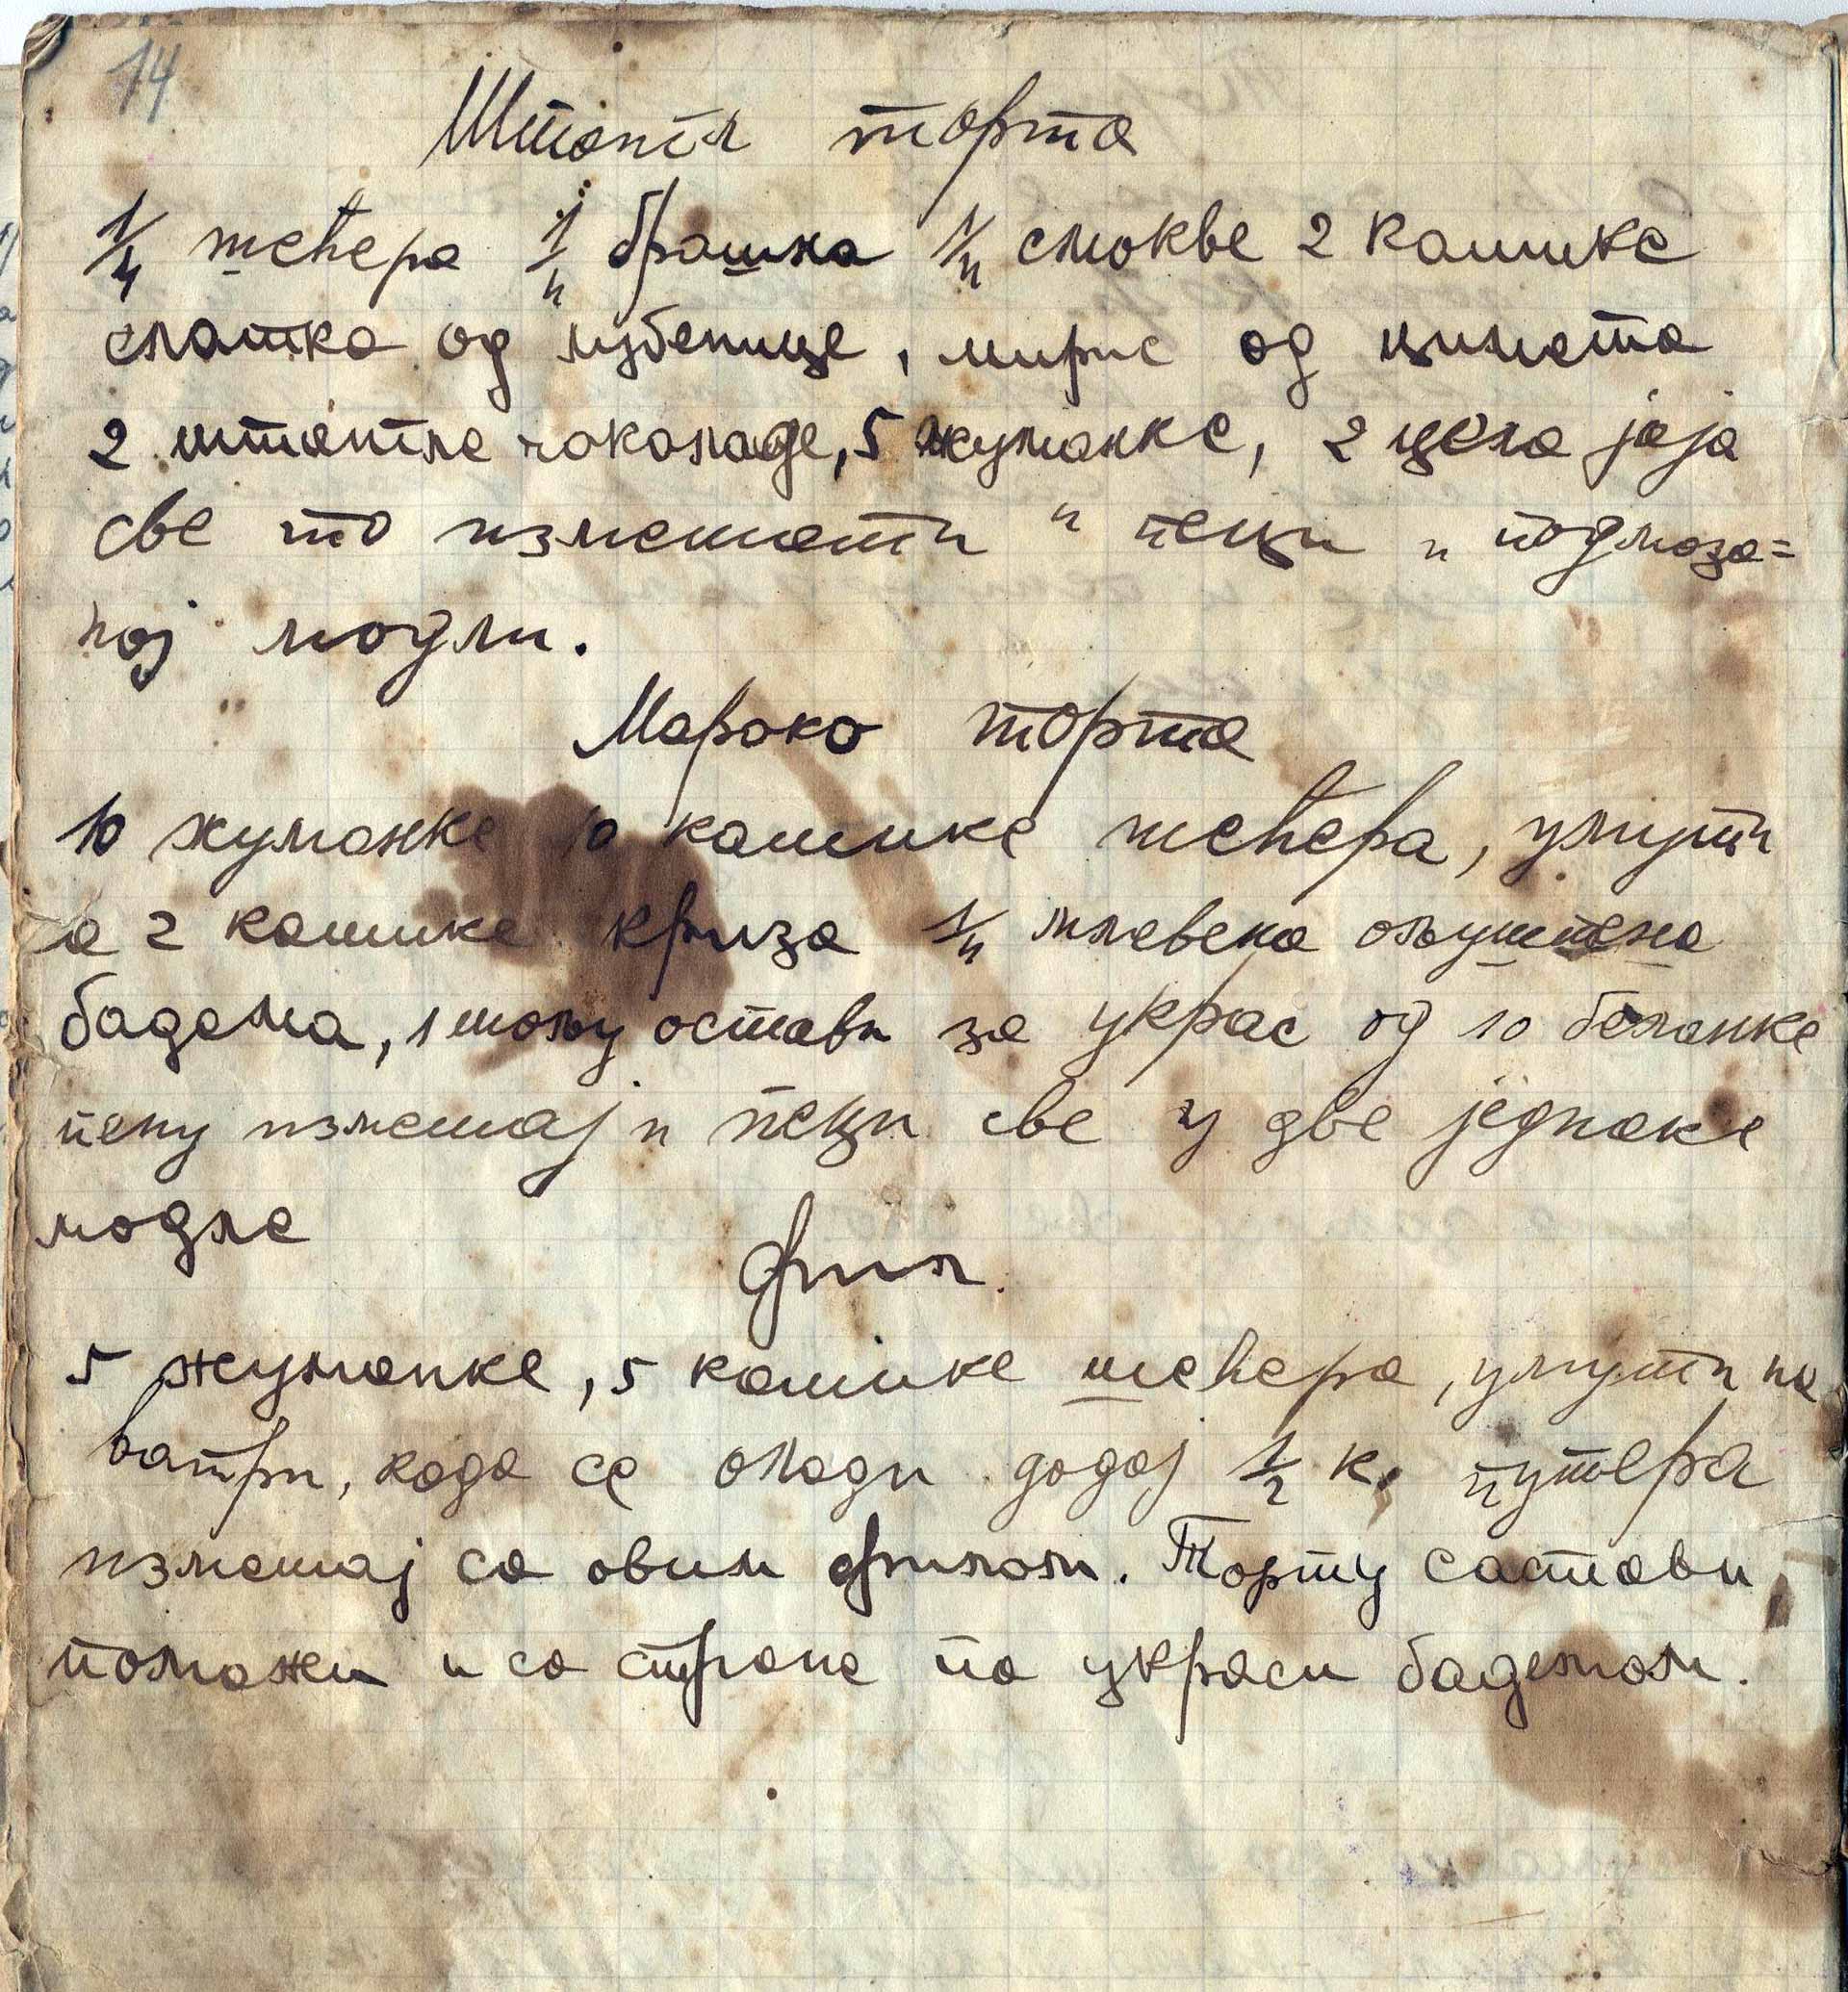 14
Штангл торта
1/4 шећера 1/4 брашна 1/4 смокве 2 кашике
слатка од лубенице, мирис од цимета
2 штангле чоколаде, 5 жуманке, 2 цела јаја
све то измешати и пеци и подмаза=
ној модли.
Мароко торта
10 жуманке 10 кашике шећера, умути
а 2 кашике криза 1/4 млевена ољуштена
бадема, 1 шољу остави за украс од 10 беланке
пену измешај и пеци све у две једнаке
модле
фил
5 жуманке, 5 кашике шећера, умути на
ватри, када се олади додај 1/2 к. путера
измешај са овим филом. Торту састави
помажи и са стране па украси бадемом.